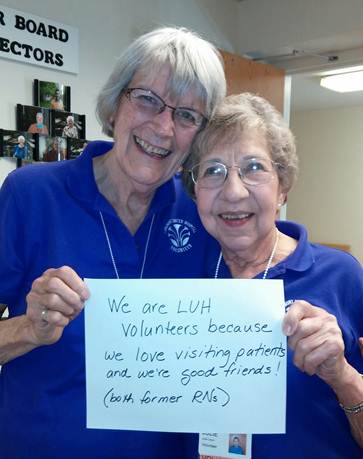 R BOARD
ECTORS
VOLUNTEER
We are LUH
Volunteers because
we love visiting patients
and we're good friends!
(both former RNs)